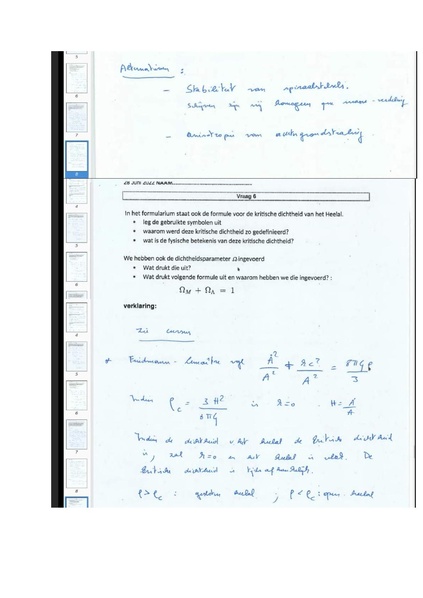 Alternatieven :
- Stabiliteit van spiraalstelsels.
schijven zijn vrij homogeen qua massa-verdeling
- anisotropie van achtergrondstraling
28 JUNI 2022 NAAM
Vraag 6
In het formularium staat ook de formule voor de kritische dichtheid van het Heelal.
• leg de gebruikte symbolen uit
• waarom werd deze kritische dichtheid zo gedefinieerd?
• wat is de fysische betekenis van deze kritische dichtheid?
We hebben ook de dichtheidsparameter Ω ingevoerd
• Wat drukt die uit?
• Wat drukt volgende formule uit en waarom hebben we die ingevoerd? :
Ω_M + Ω_Λ = 1
verklaring:
zie cursus
* Friedmann - Lemaître vgl Ȧ²/A² + kc²/A² = 8πGρ/3
Indien ρc = 3H²/8πG is k=0 H = Ȧ/A
Indien de dichtheid v het heelal de kritische dichtheid
is, zal k=0 en het heelal is vlak. De
kritische dichtheid is tijdsafhankelijk.
ρ > ρc : gesloten heelal ; ρ < ρc : open heelal